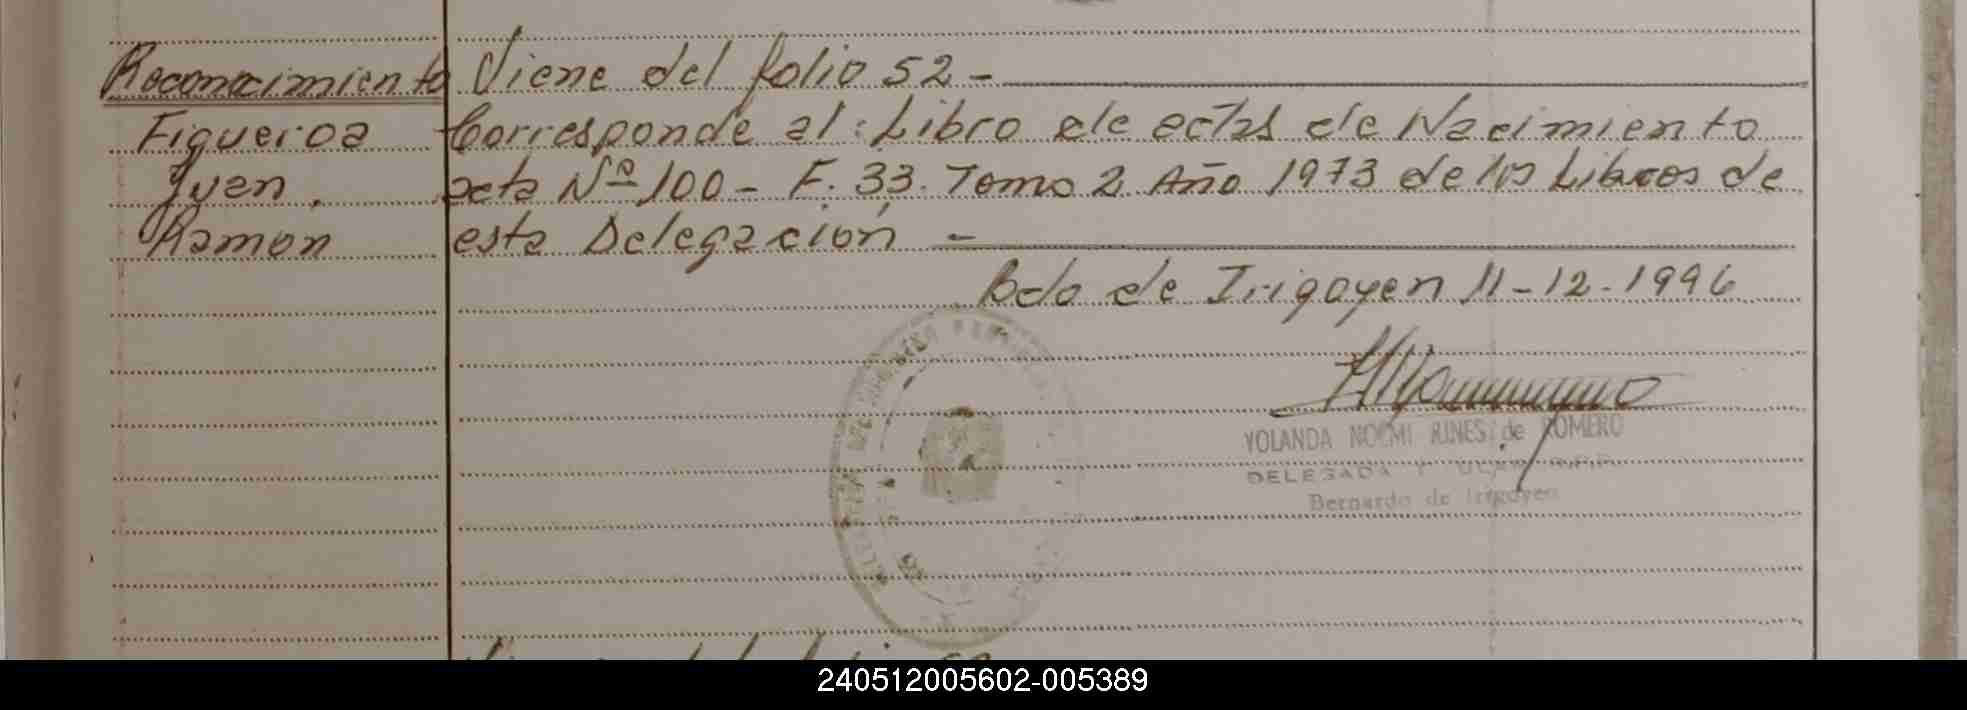 Reconocimiento
Figueroa
Juan
Ramon
Viene del folio 52 -
Corresponde al: Libro de actas de Nacimiento
acta Nº 100 - F. 33. Tomo 2 Año 1973 de los Libros de
esta Delegación -
Bdo de Irigoyen 11-12-1996
YOLANDA NOEMI RINES de ROMERO
DELEGADA
Bernardo de Irigoyen
240512005602-005389